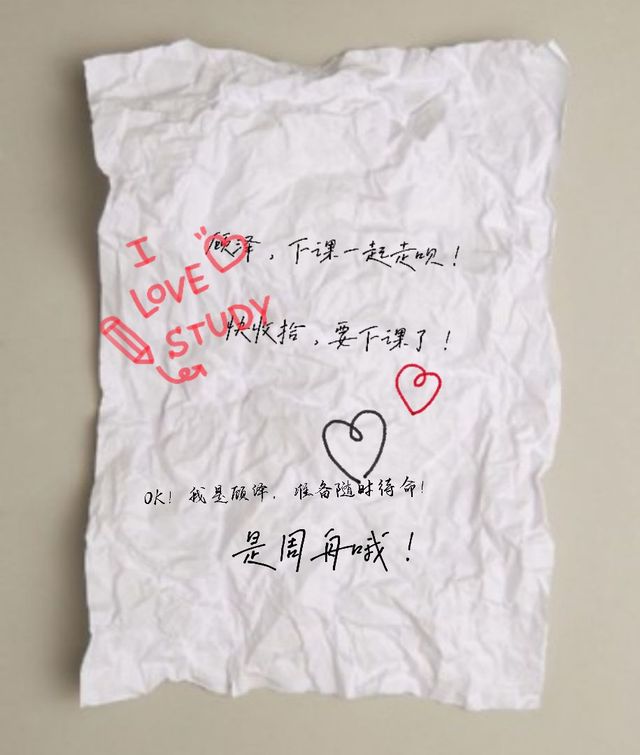 顾泽，下课一起走呗！
I
LOVE
STUDY
快收拾，要下课了！
OK！我是顾泽，准备随时待命！
是周舟哦！